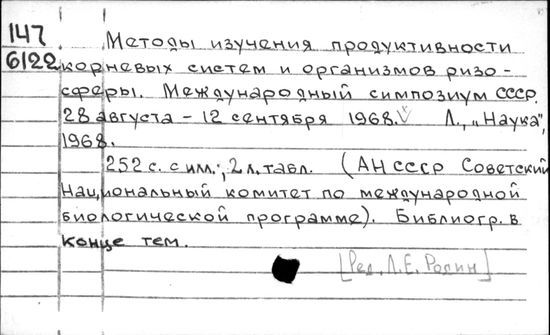 147
6122
Методы изучения продуктивности
корневых систем и организмов ризо-
сферы. Международный симпозиум СССР.
28 августа - 12 сентября 1968. Л., „Наука",
1968.
252 с. с илл.; 2 л. табл. (АН СССР Советский
Национальный комитет по международной
биологической программе). Библиогр. в
конце тем.
[Ред. Л.Е. Родин]